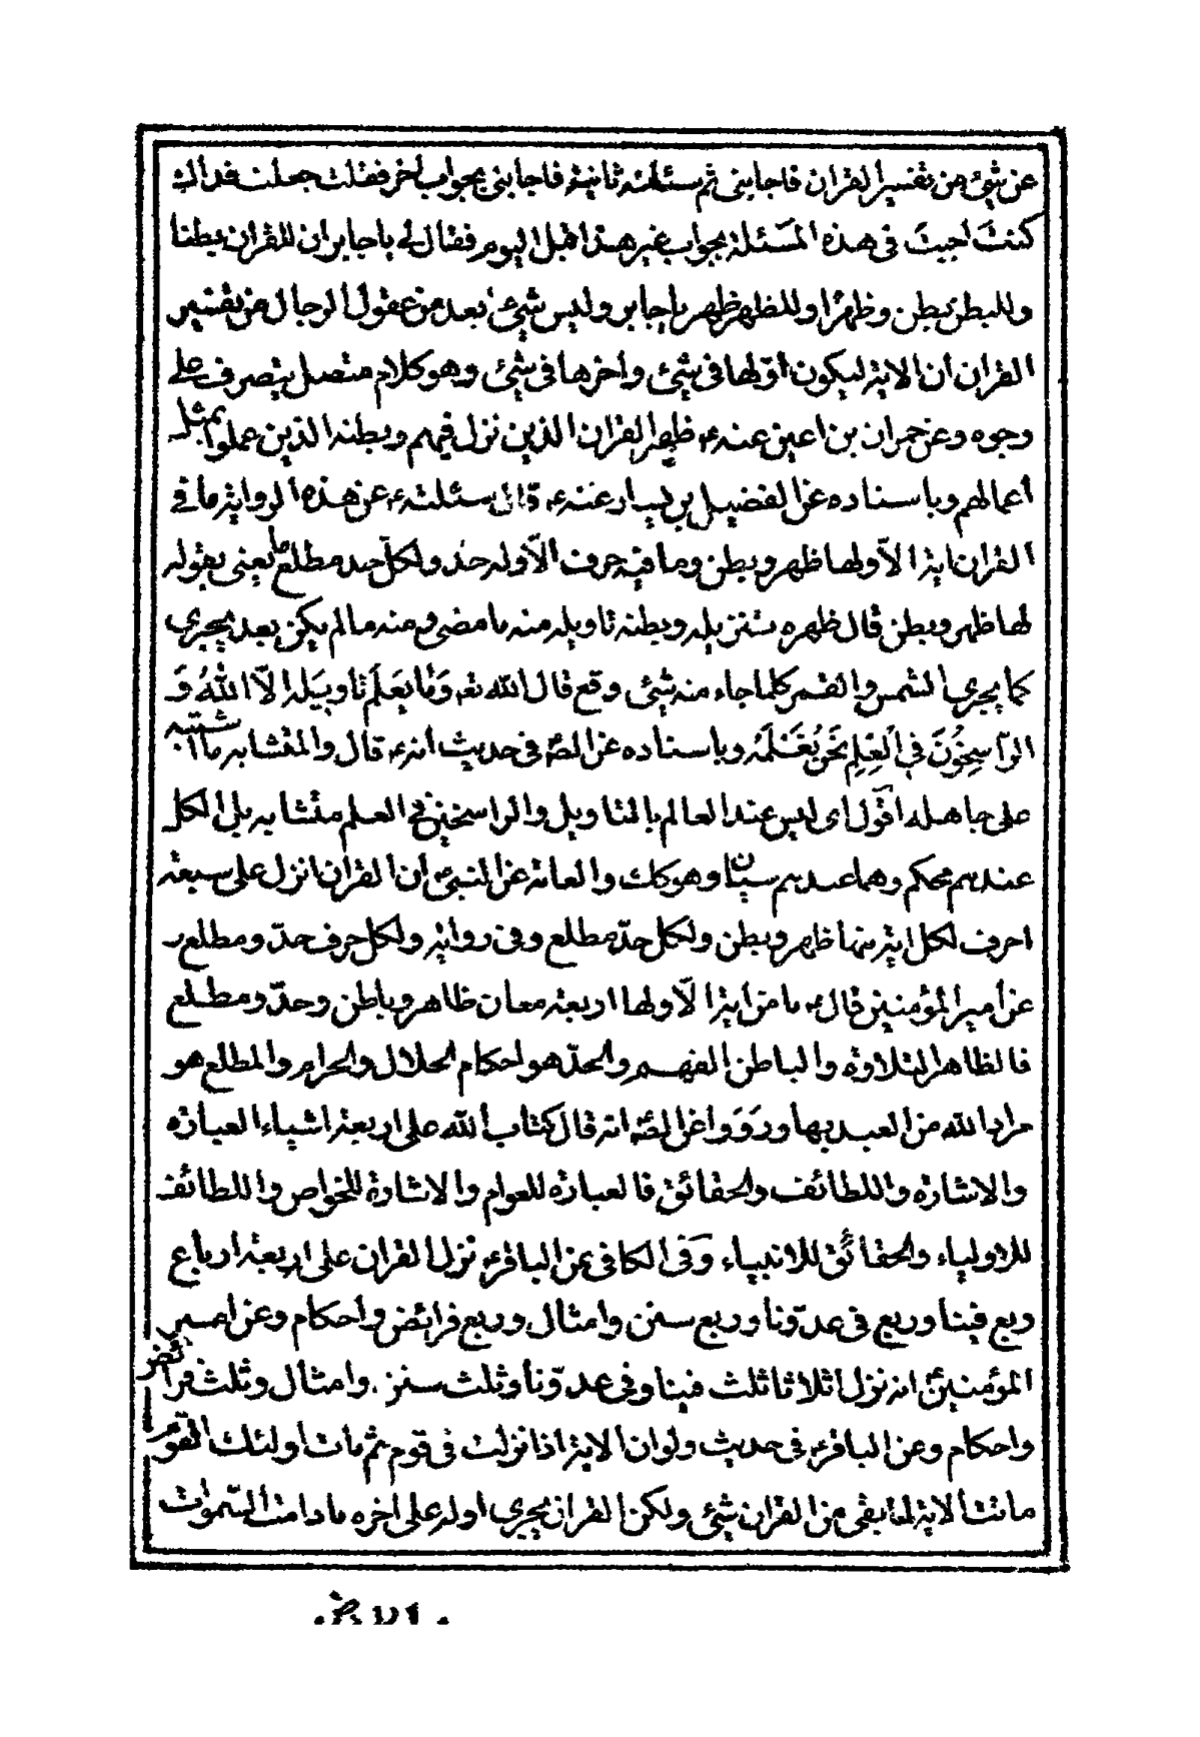 عن شئ من تفسير القران فاجابنى ثم سئلته ثانية فاجابنى بجواب اخر فقلت جعلت فداك
كنتَ اجبتَ فى هذه المسَئلة بجواب غير هذا قبل اليوم فقال لى يا جابر ان للقران بطنا
وللبطن بطن وظهرًا وللظهر ظهر يا جابر وليس شئ ابعد من عقول الرجال من تفسير
القران ان الاية ليكون اوّلها فى شئ واخرها فى شئ وهو كلام متصل يتصرف على
وجوه وعن حمران بن اعين عنه ع ظهر القران الذين نزل فيهم وبطنه الذين عملوا بمثل
اعمالهم وباسناده عن الفضيل بن يسار عنه ع قال سئلته ع عن هذه الرواية ما فى
القران اية الاّ ولها ظهر وبطن وما فيه حرف الاّ وله حد ولكلّ حد مطلع ما يعنى بقوله
لها ظهر وبطن قال ظهره تنزيله وبطنه تاويله منه ما مضى ومنه ما لم يكن بعد يجرى
كما يجرى الشمس والقمر كلما جاء منه شئ وقع قال الله تعه وَمٰا يَعلَم تٰاوِيَله الاّ اللهُ وَ
الرّاسِخُونَ فِي الْعِلِم نَحَنُ نُعَلَمَهُ وباسناده عن الصّ فى حديث انه ع قال والمتشابه ما اشتبه
على جاهله اقَول اى ليس عند العالم بالتاويل والراسخين فى العلم متشابه بل الكل
عندهم محكم وهما عندهم سيّان وهو كك والعامة عن النبى ص ان القران انزل على سبعة
احرف لكل اية منها ظهر وبطن ولكل حدّ مطلع وفى رواية ولكل حرف حدّ ومطلع و
عن امير المؤمنين قال ع ما من اية الاّ ولها اربعة معان ظاهر وباطن وحدّ ومطلع
فالظاهر التلاوة والباطن الفهم والحدّ هو احكام الحلال والحرام والمطلع هو
مراد الله من العبد بها ورَوَوا عن الصّ انه قال كتاب الله على اربعة اشياء العبارة
والاشارة واللطائف والحقائق فالعبارة للعوام والاشارة للخواص واللطائف
للاولياء والحقائق للانبياء وَفى الكافى عن الباقر ع نزل القران على اربعة ارباع
ربع فينا وربع فى عدوّنا وربع سنن وامثال وربع فرائض واحكام وعن امير
المؤمنين ع انه نزل اثلاثا ثلث فينا وفى عدوّنا وثلث سنن وامثال وثلث فرائض
واحكام وعن الباقر ع فى حديث ولو ان الاية اذا نزلت فى قوم ثم مات اولئك القوم
ماتت الاية لما بقى من القران شئ ولكن القران يجرى اوله على اخره ما دامت السّموات